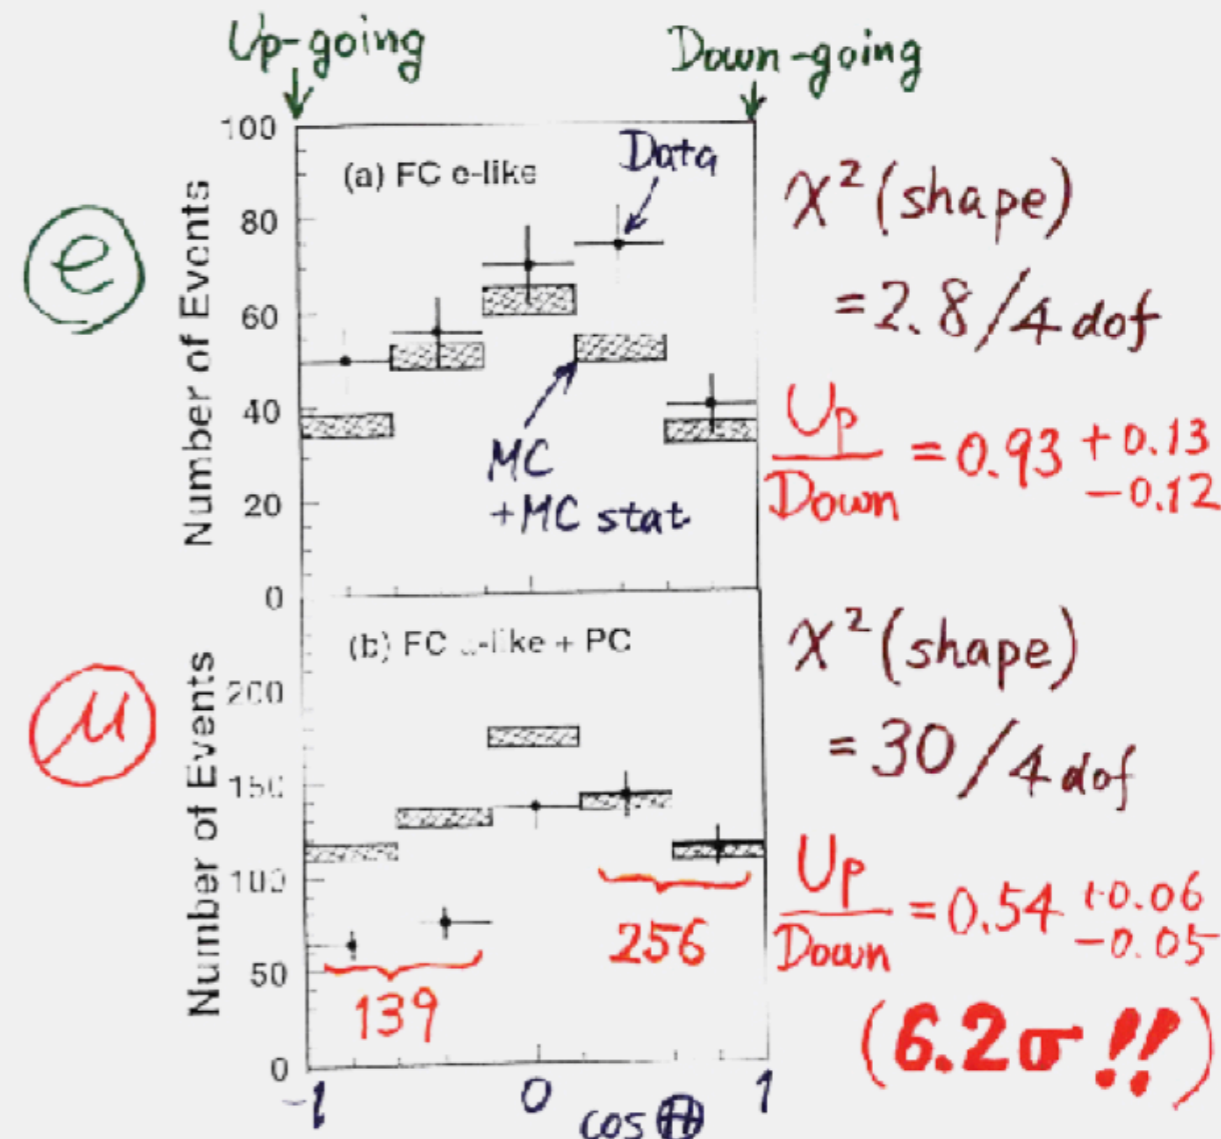 Up-going Down-going
100
80
60
40
20
0
Number of Events
(a) FC e-like
Data
e
MC
+MC stat
χ² (shape)
= 2.8 / 4 dof
Up/Down = 0.93 +0.13 -0.12
200
150
100
50
0
Number of Events
(b) FC -like + PC
μ
139
256
χ² (shape)
= 30 / 4 dof
Up/Down = 0.54 +0.06 -0.05
(6.2σ !!)
-1 0 1
cos Θ